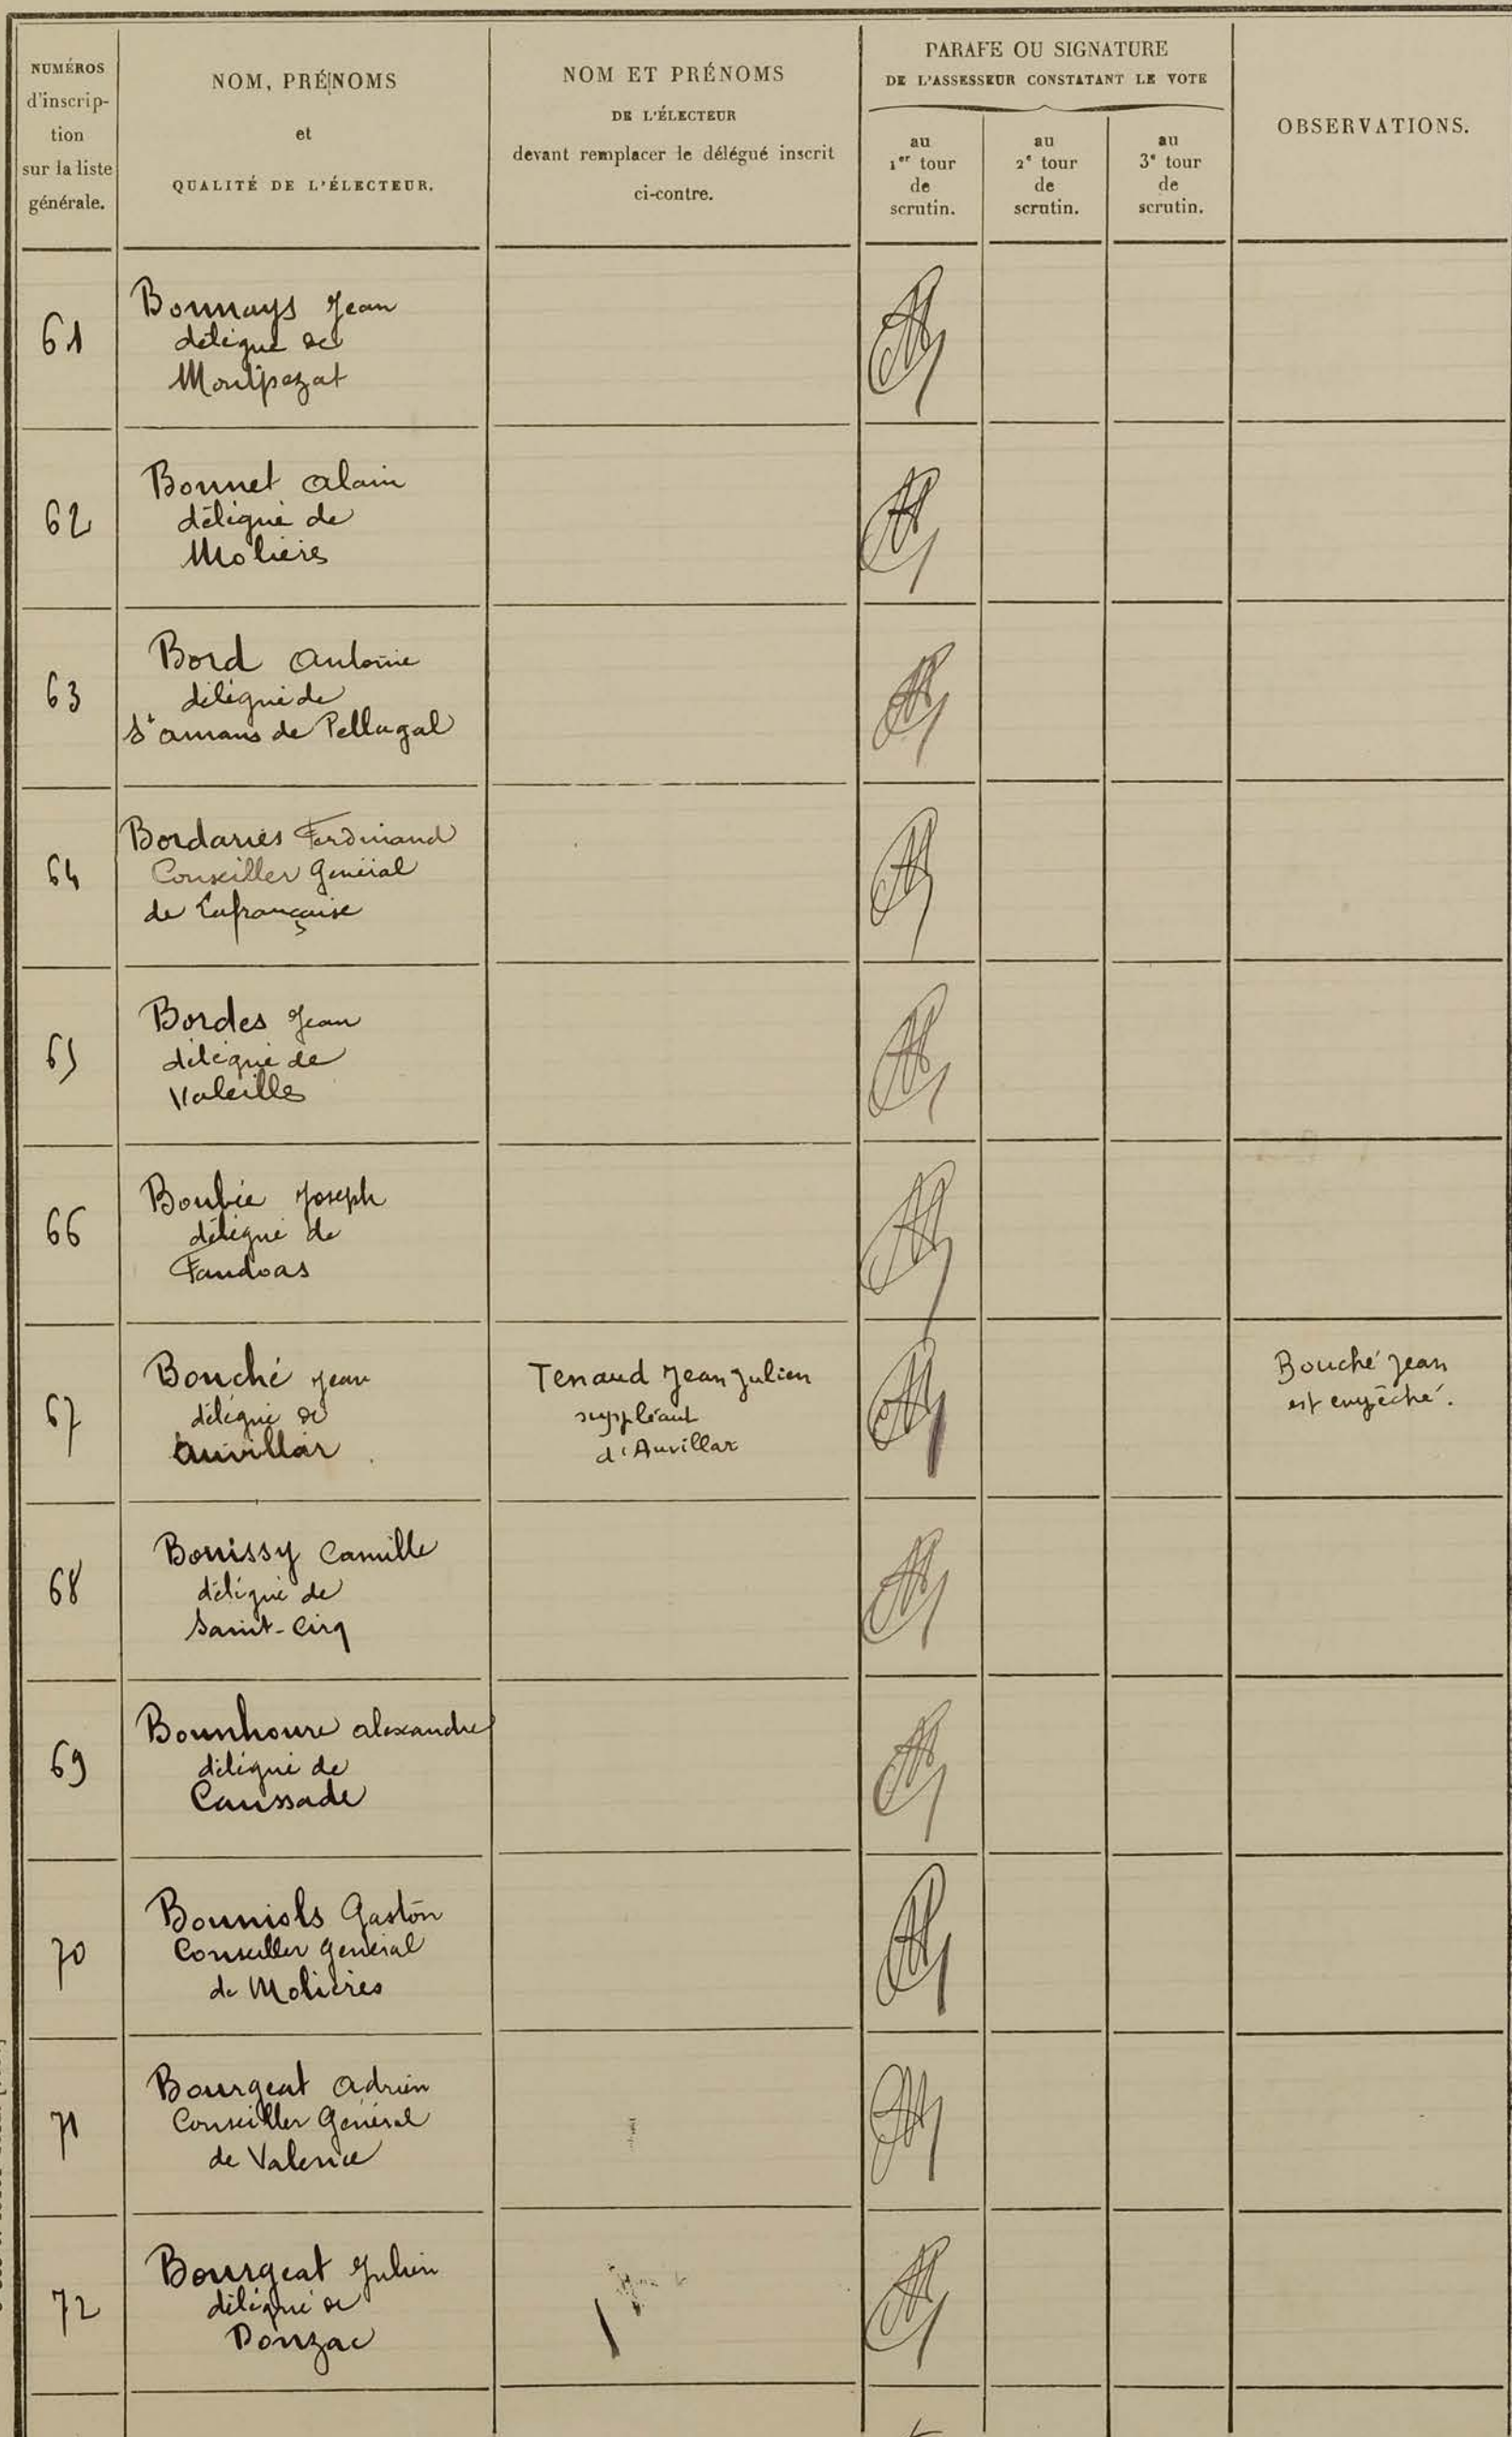 NUMÉROS
d'inscrip-
tion
sur la liste
générale.
NOM, PRÉNOMS
et
QUALITÉ DE L'ÉLECTEUR.
NOM ET PRÉNOMS
DE L'ÉLECTEUR
devant remplacer le délégué inscrit
ci-contre.
PARAFE OU SIGNATURE
DE L'ASSESSEUR CONSTATANT LE VOTE
au
1er tour
de
scrutin.
au
2e tour
de
scrutin.
au
3e tour
de
scrutin.
OBSERVATIONS.
61
Bonnays Jean
délégué de
Montpezat
62
Bonnet Alain
délégué de
Molières
63
Bord Antonie
délégué de
St Amans de Pellagal
64
Bordariès Ferdinand
Conseiller Général
de Lafrançaise
65
Bordes Jean
délégué de
Valeilles
66
Boubée Joseph
délégué de
Faudoas
67
Bouché Jean
délégué de
Auvillar
Tenaud Jean Julien
suppléant
d'Auvillar
Bouché Jean
est empêché.
68
Bouissy Camille
délégué de
Saint-Cirq
69
Bounhoure Alexandre
délégué de
Caussade
70
Bouniols Gaston
Conseiller Général
de Molières
71
Bourgeat Adrien
Conseiller Général
de Valence
72
Bourgeat Julien
délégué de
Donzac